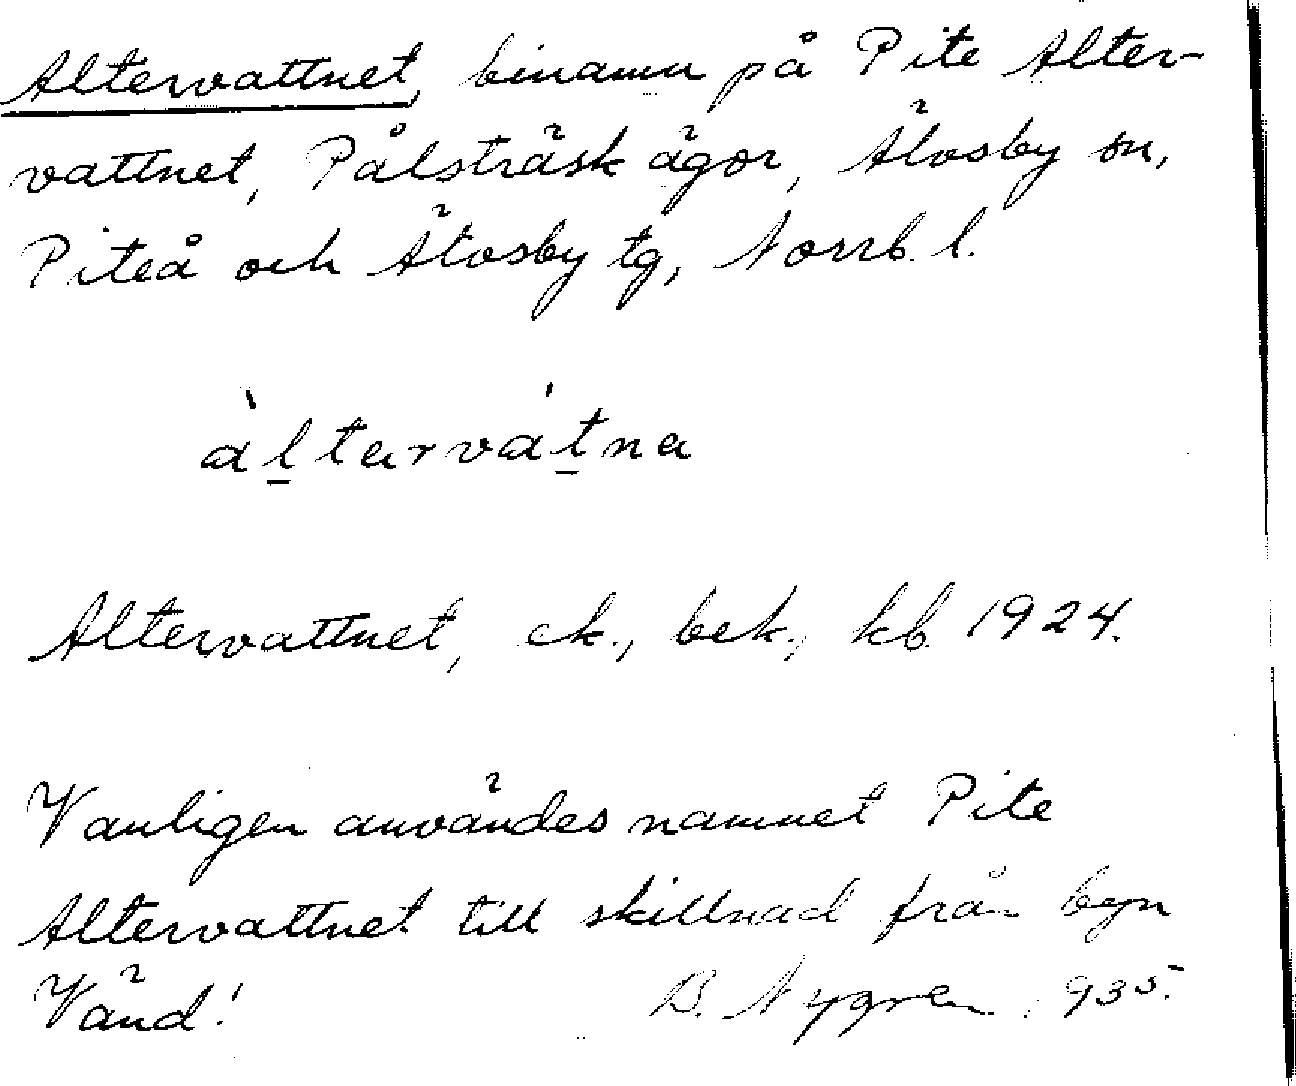 Altervattnet, binamn på Pite Alter-
vattnet, Pålsträsk ägor, Älvsby sn,
Piteå och Älvsby tg, Norrb. l.
àl̠tərvát̠nə
Altervattnet, ek., bek., kb. 1924.
Vanligen användes namnet Pite
Altervattnet till skillnad från byn
Vänd! B. Nygren 1935.